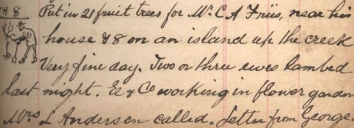 TH. 8 Put in 21 fruit trees for Mr. C. A. Friis, near his
house & 8 on an island up the creek
Very fine day. Two or three ewes lambed
last night. E. & Co working in flower garden
Mrs L Andersen called. Letter from George